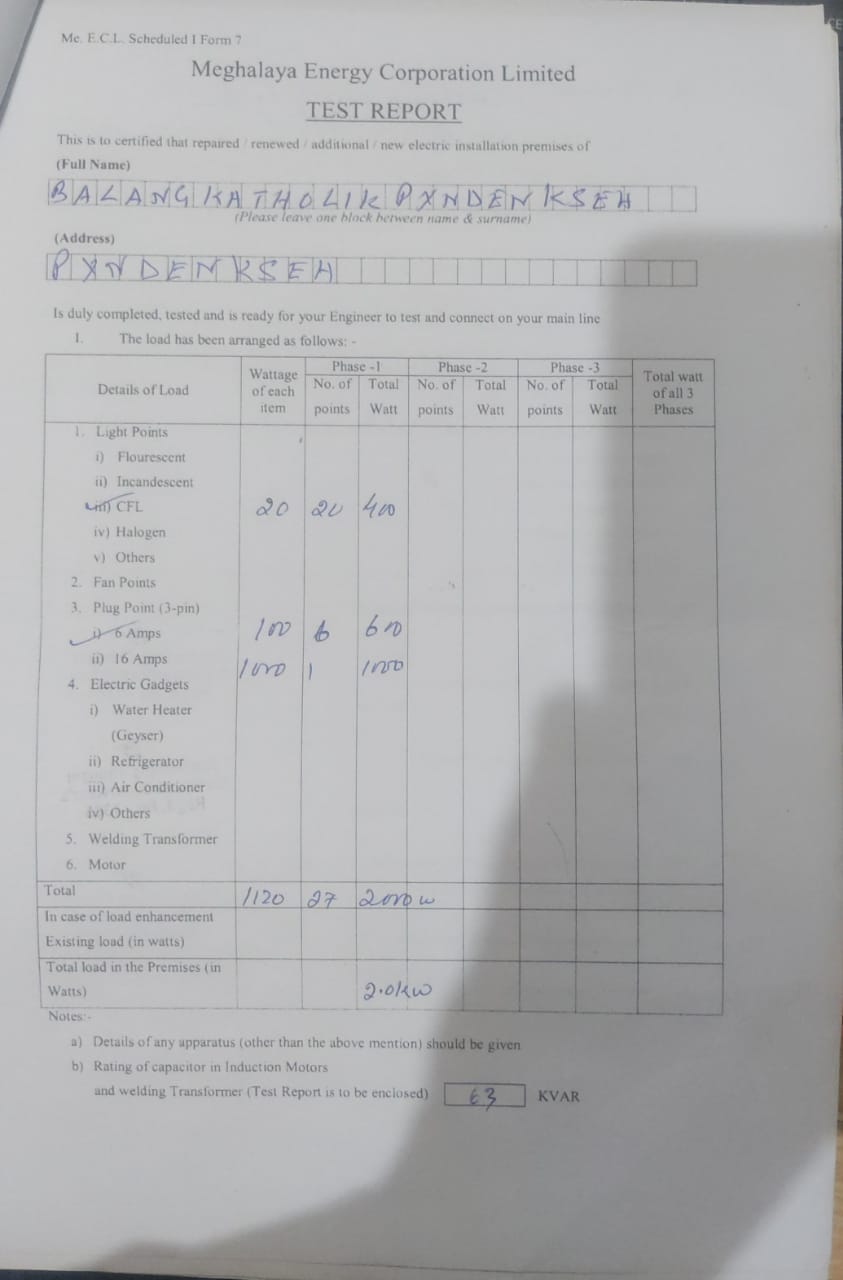 Me. E.C.L. Scheduled I Form 7
Meghalaya Energy Corporation Limited
TEST REPORT
This is to certified that repaired / renewed / additional / new electric installation premises of
(Full Name)
BALANG KATHOLIK PYNDENKSEH
(Please leave one block between name & surname)
(Address)
PYNDENKSEH
Is duly completed, tested and is ready for your Engineer to test and connect on your main line
1. The load has been arranged as follows: -
Details of Load Wattage of each item Phase -1 Phase -2 Phase -3 Total watt of all 3 Phases
No. of points Total Watt No. of points Total Watt No. of points Total Watt
1. Light Points
i) Flourescent
ii) Incandescent
iii) CFL 20 20 400
iv) Halogen
v) Others
2. Fan Points
3. Plug Point (3-pin)
i) 6 Amps 100 6 600
ii) 16 Amps 1000 1 1000
4. Electric Gadgets
i) Water Heater
(Geyser)
ii) Refrigerator
iii) Air Conditioner
iv) Others
5. Welding Transformer
6. Motor
Total 1120 27 2000 w
In case of load enhancement
Existing load (in watts)
Total load in the Premises (in
Watts) 2.0kw
Notes:-
a) Details of any apparatus (other than the above mention) should be given
b) Rating of capacitor in Induction Motors
and welding Transformer (Test Report is to be enclosed) 63 KVAR